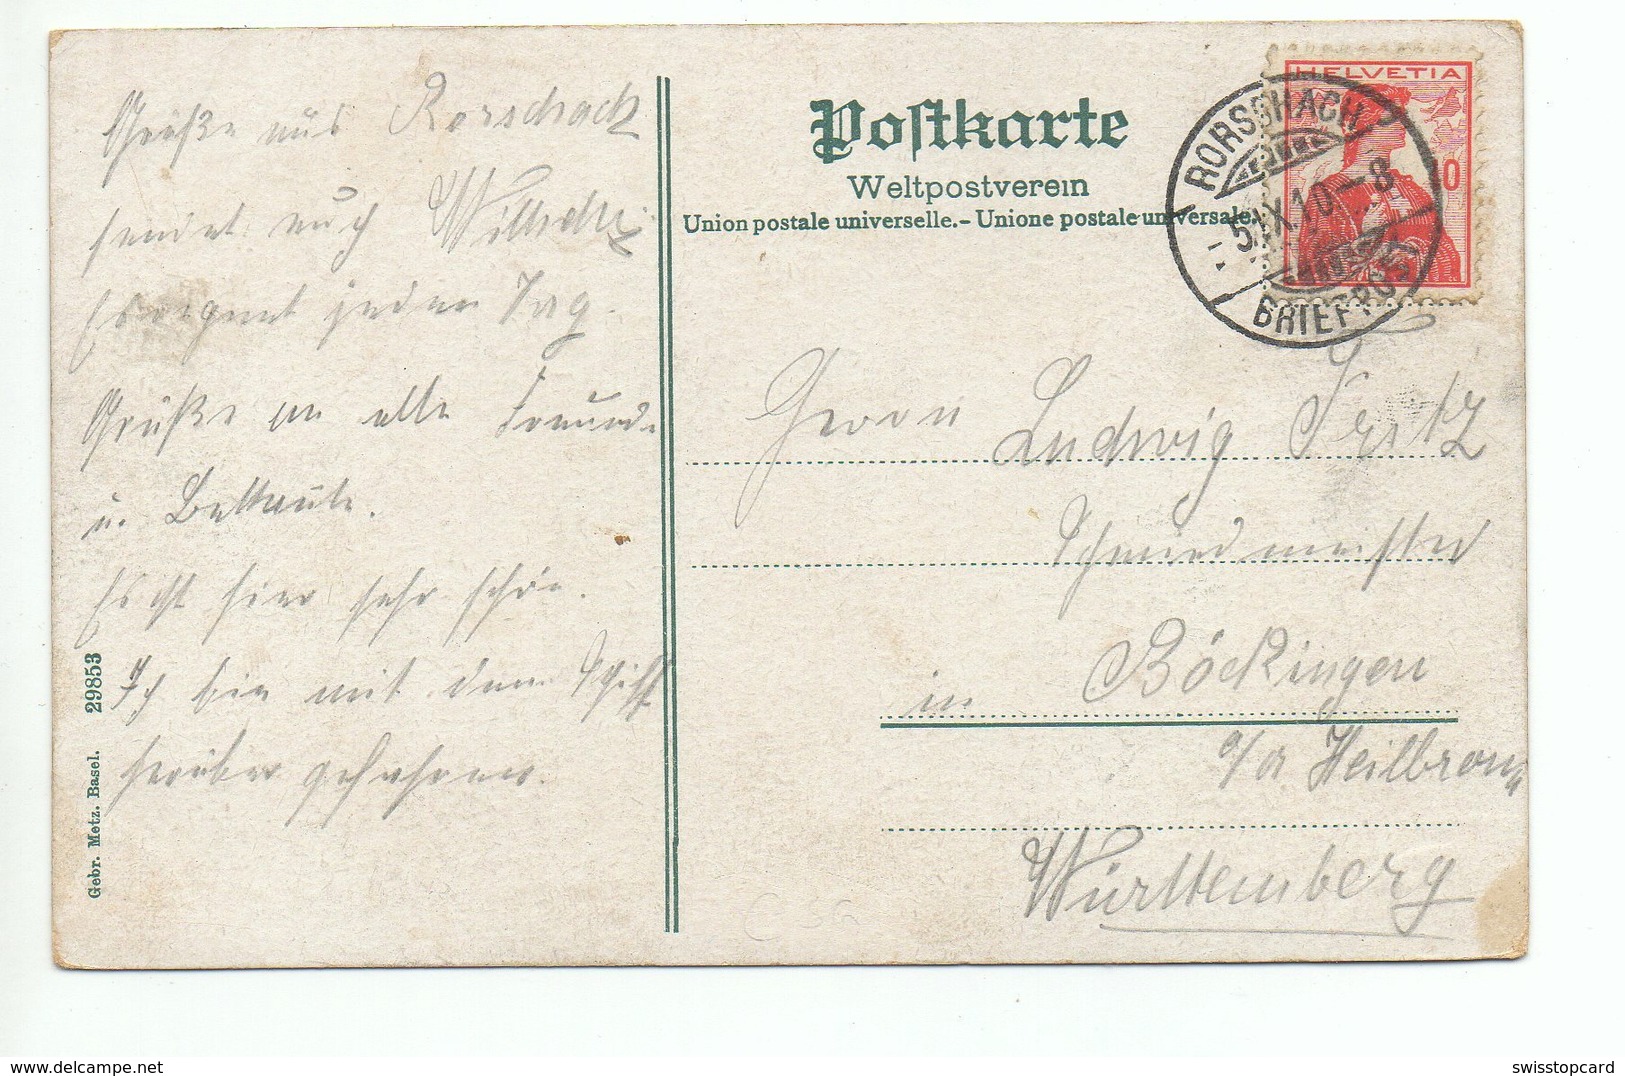 Grüße aus Rorschach
sendet euch
Es regnet jeden Tag.
Grüße an alle Freunde
u. Bekannte.
Es ist hier sehr schön.
Ich bin mit dem Schiff
herüber gefahren.
Gebr. Metz. Basel. 29853
Postkarte
Weltpostverein
Union postale universelle.- Unione postale universale.
HELVETIA
10
RORSCHACH
5.IX.10-8
BRIEFPOST
Herrn Ludwig Fritz
Schmiedmeister
in Böckingen
a/a Heilbronn
Württemberg
C SG
hippostcard.com
swisstopcard